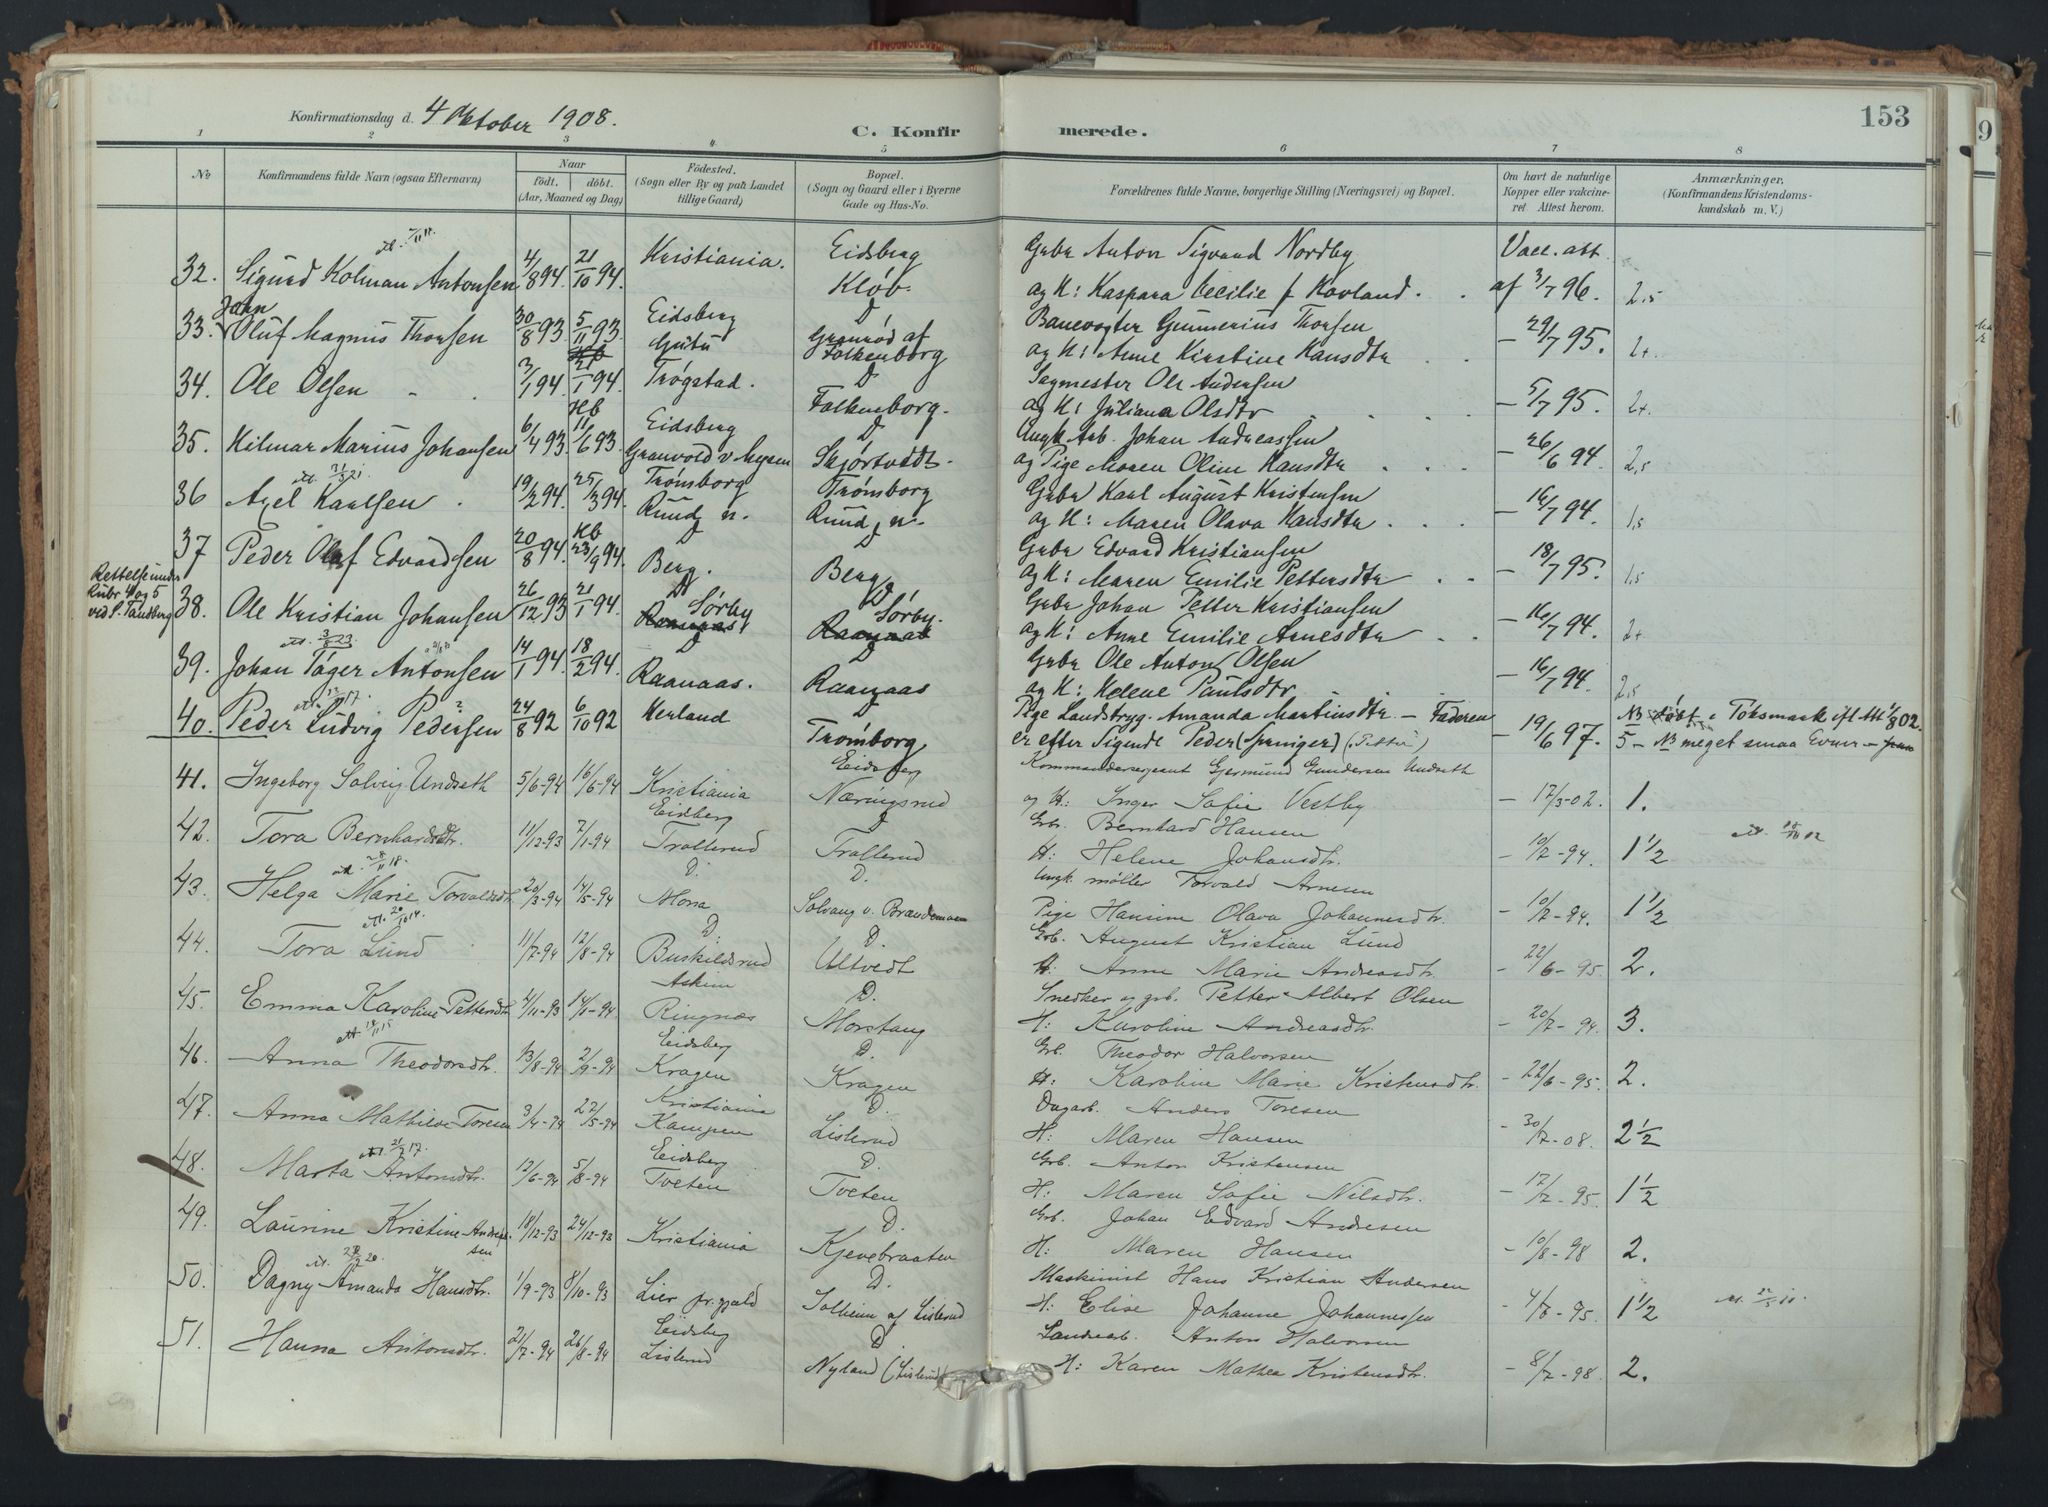 Konfirmationsdag d. 4 Oktober 1908.
C. Konfirmerede.
153
1 2 3 4 5 6 7 8
No
Konfirmandens fulde Navn (ogsaa Efternavn)
Naar
födt. döbt.
(Aar, Maaned og Dag)
Födested.
(Sogn eller By og paa Landet
tillige Gaard)
Bopæl.
(Sogn og Gaard eller i Byerne
Gade og Hus-No.
Forældrenes fulde Navne, borgerlige Stilling (Næringsvei) og Bopæl.
Om havt de naturlige
Kopper eller vakcine-
ret Attest herom.
Anmærkninger,
(Konfirmandens Kristendoms-
kundskab m. V.)
32. Sigurd Kolman Antonsen 4/8 94. 21/10 94. Kristiania. Eidsberg Kløb.
Gbr Anton Sigvand Nordby
og H: Kaspara Cecilie f Hovland. Vacc. att. af 3/7 96. 2,5
33. John Oluf Magnus Thorsen 30/8 93. 5/11 93. Eidsberg D Granrød af Falkenborg
Banevogter Gunnerius Thorsen
og H: Anne Kirstine Hansdtr - 29/7 95. 2+.
34. Ole Olsen 3/1 94. 21/1 94. Trøgstad. D Falkenborg.
Sagmester Ole Andersen
og H: Juliana Olsdtr - 5/7 95. 2+.
35. Hilmar Marius Johansen 6/4 93. Hb 11/6 93. Eidsberg Granvold v Mysen D Skjørtvedt.
Ungk Arb. Johan Andreassen
og Pige Maren Oline Hansdtr - 26/6 94. 2,5
36 Axel Karlsen 19/2 94. 25/3 94. Trømborg Ruud, n. Trømborg Ruud, n.
Gbr Karl August Kristensen
og H: Maren Olava Hansdtr - 16/7 94. 1,5
37 Peder Olaf Edvardsen 20/8 94. Hb 23/9 94. D Berg. D Berg
Gbr Edvard Kristiansen
og H: Maren Emilie Pettersdtr - 18/7 95. 1,5
Rettelse under
Rubr 4 og 5
ved S. Tandberg
38. Ole Kristian Johansen 26/12 93 21/1 94. D Sørby Raanaas D Sørby. Raanaas
Gbr Johan Petter Kristiansen
og H: Anne Emilie Arnesdtr - 16/7 94. 2+
39. Johan Tåger Antonsen 14/1 94. 18/2 94. D Raanaas. D Raanaas
Gbr Ole Anton Olsen
og H: Helene Paulsdtr - 16/7 94. 2,5
40. Peder Ludvig Pedersen 24/8 92 6/10 92 Herland D Trømborg
Pige Landstryg. Amanda Martinsdtr - Faderen
er efter Sigende Peder (Springer) ("Petter") - 19/6 97. 5 - NB meget smaa Evner
41. Ingeborg Solveig Undseth 5/6-94 16/6-94 Kristiania Eidsberg Næringsrud
Kommandersergeant Gjermund Gundersen Undseth
og H: Inger Sofie Vestby - 17/3-02. 1.
42. Tora Bernhardsdtr. 11/12-93 7/1-94 Eidsberg Trollerud D Trollerud
Grb. Bernhard Hansen
H: Helene Johansdtr. - 10/7-94. 1 1/2
43. Helga Marie Torvaldsdtr. 20/3-94 14/5-94 D. Mona D. Solvang v. Brandemoen
Ungk. møller Torvald Arnesen
Pige Hansine Olava Johannesdtr. - 10/7-94. 1 1/2
44. Tora Lund 11/7-94 12/8-94 D. Buskildsrud D. Ultvedt
Grb. August Kristian Lund
H: Anne Marie Andreasdtr. - 22/6-95. 2.
45. Emma Karoline Pettersdtr. 4/11-93 14/1-94 Askim Ringnæs D. Morstang
Snedker og grb. Petter Albert Olsen
H: Karoline Andreasdtr. - 20/7-94. 3.
46. Anna Theodorsdtr. 13/8-94 2/9-94 Eidsberg Kragen D. Kragen
Grb. Theodor Halvorsen
H: Karoline Marie Kristensdtr. - 22/6-95. 2.
47. Anna Mathilde Toresen 3/4-94 27/5-94 Kristiania Kampen D. Lislerud
Dagarb. Anders Toresen
H: Maren Hansen - 30/7-08. 2 1/2
48. Marta Antonsdtr. 12/6-94 5/8-94 Eidsberg Tveten D. Tveten
Grb. Anton Kristensen
H: Maren Sofie Nilsdtr. - 17/7-95. 1 1/2
49. Laurine Kristine Andresen 18/12-93 24/12-93 Kristiania D. Kjenebraaten
Grb. Johan Edvard Andresen
H: Maren Hansen - 10/8-98 2.
50. Dagny Amanda Hansdtr. 1/9-93 8/10-93 Lier pr.gjæld D. Solheim af Lislerud
Maskinist Hans Kristian Andersen
H: Elise Johanne Johannessen - 4/8-95. 1 1/2
51. Hanna Antonsdtr. 21/7-94 26/8-94 Eidsberg Lislerud D. Nyland (Lislerud)
Landarb. Anton Halvorsen
H: Karen Mathea Kristensdtr. - 8/7-98. 2.